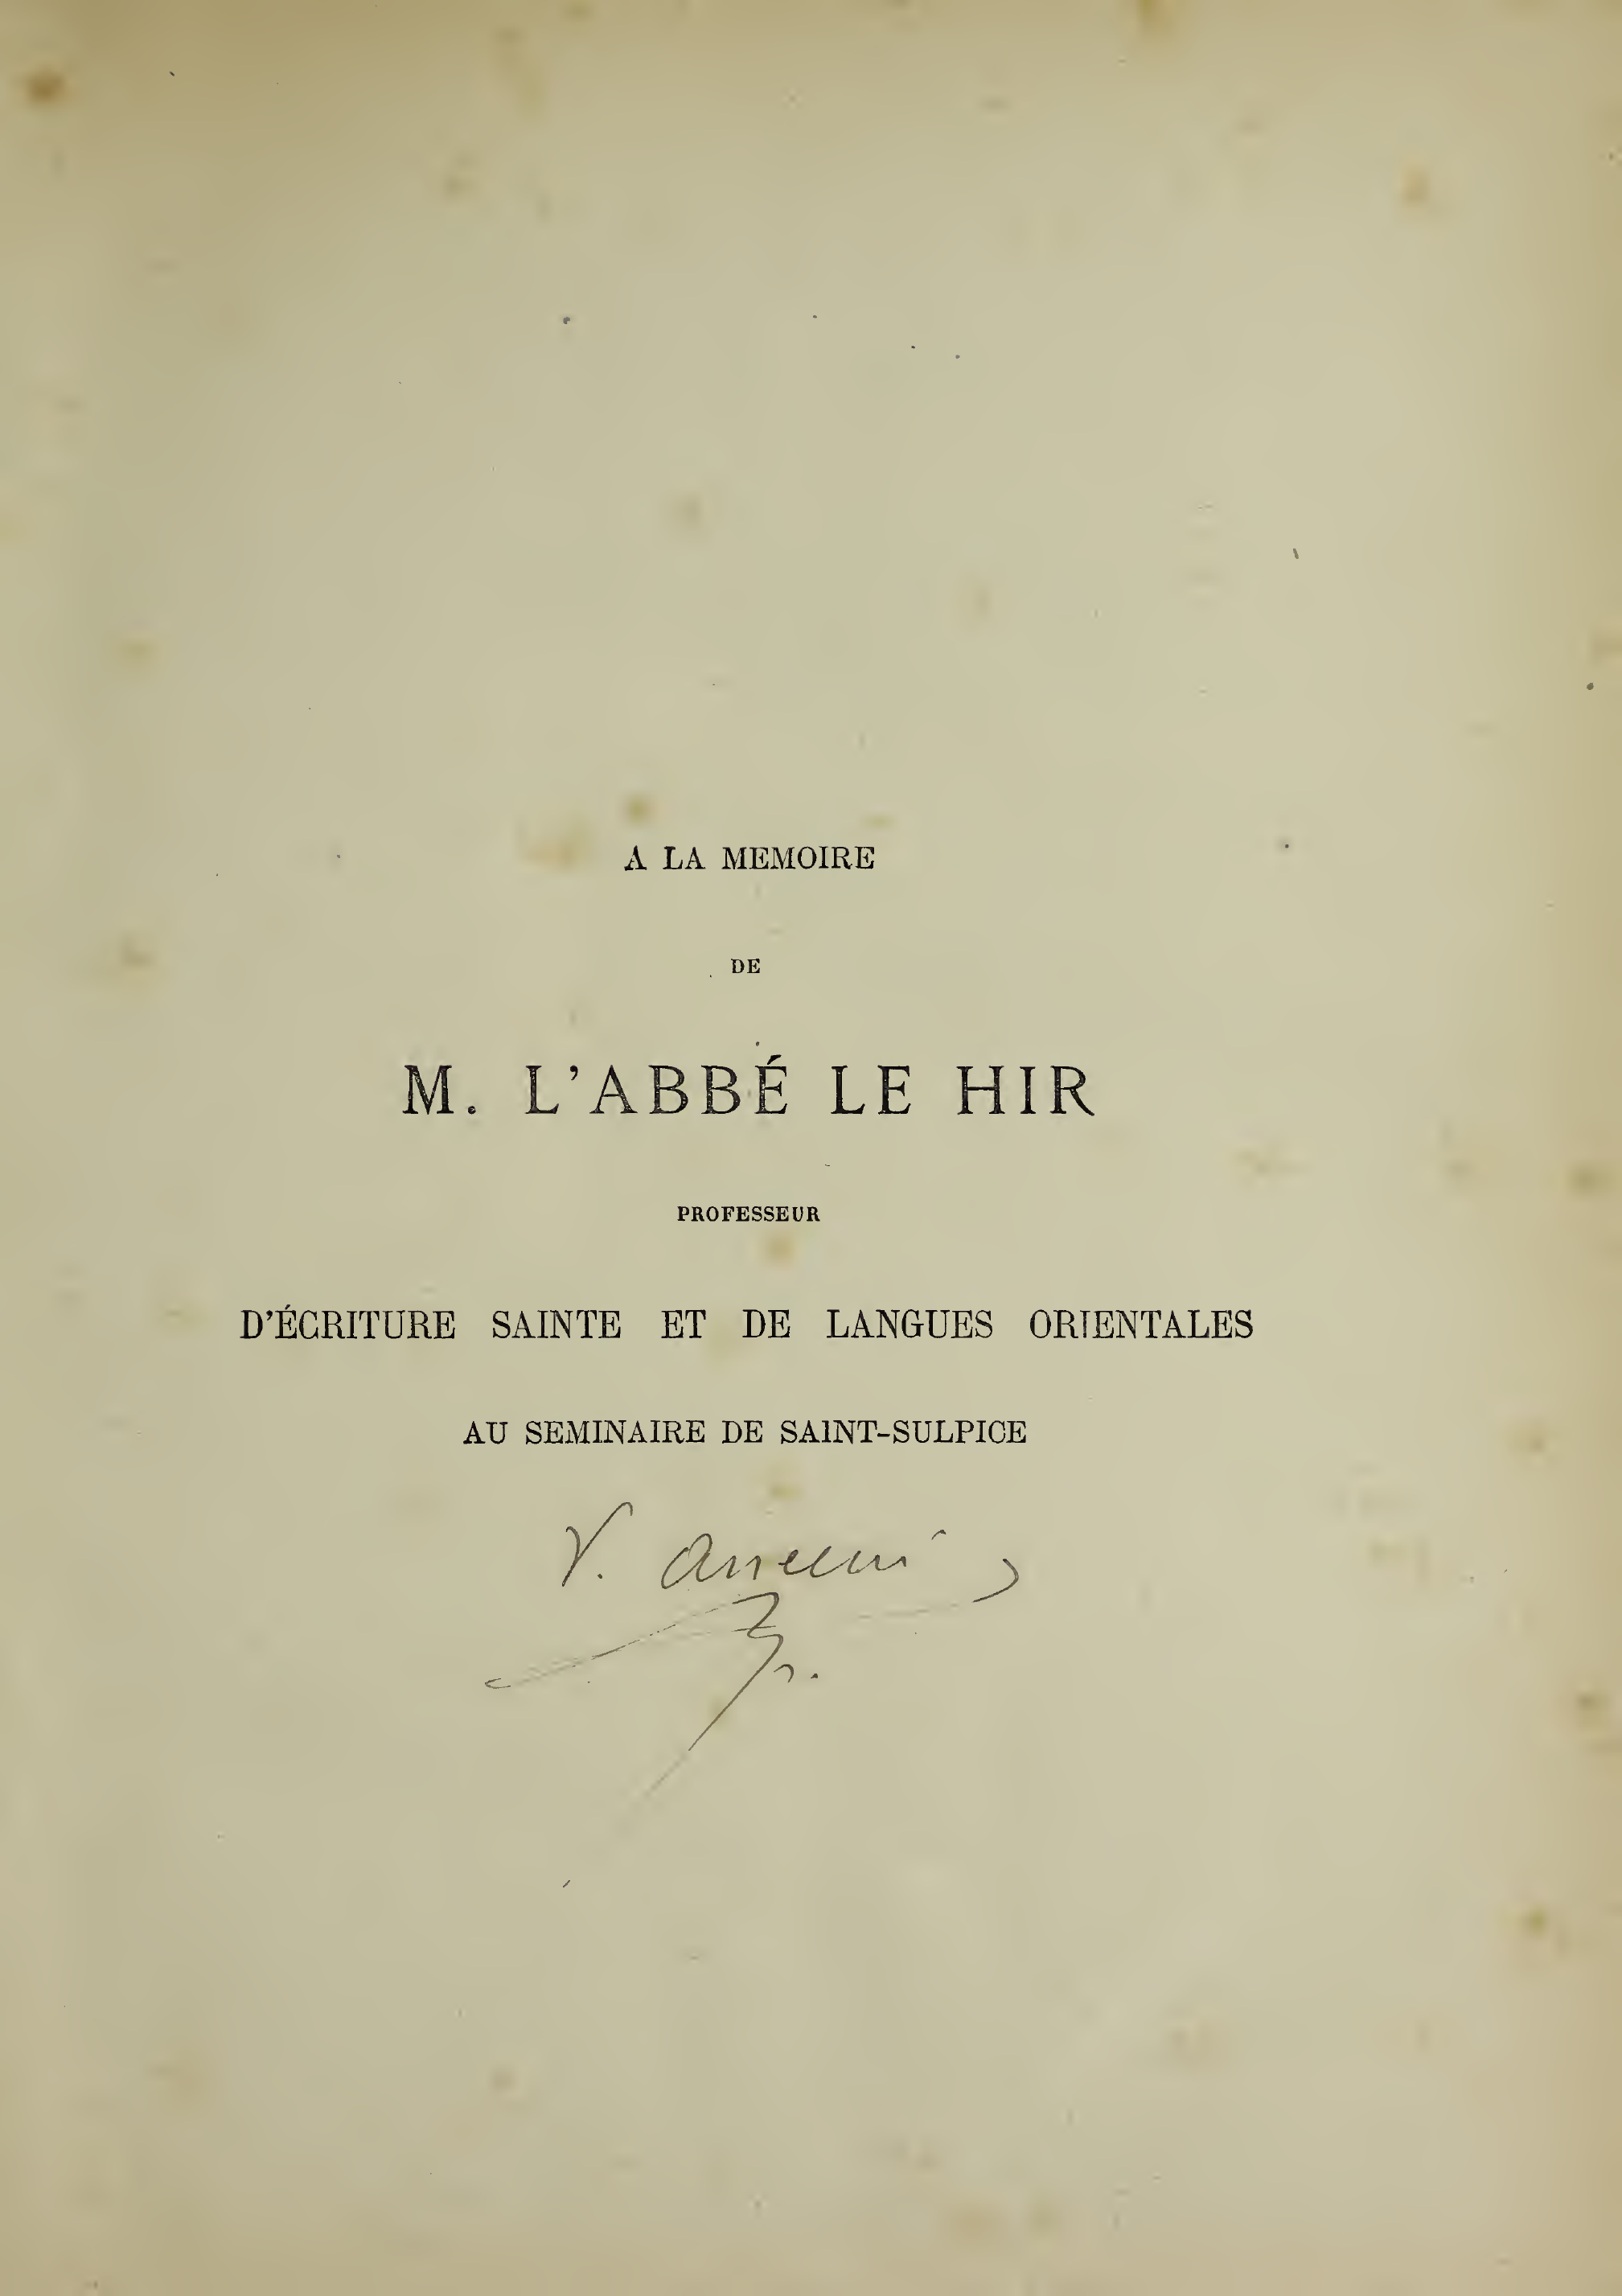 A LA MEMOIRE
DE
M. L'ABBÉ LE HIR
PROFESSEUR
D'ÉCRITURE SAINTE ET DE LANGUES ORIENTALES
AU SEMINAIRE DE SAINT-SULPICE
V.